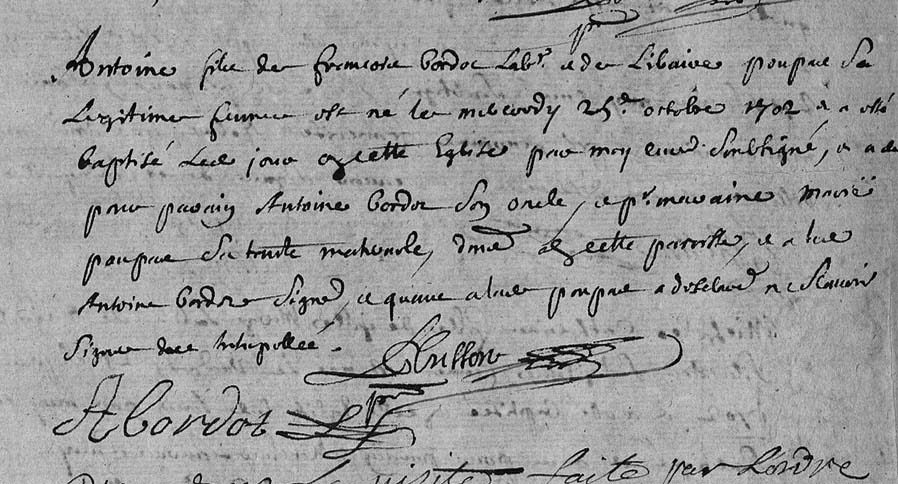 Antoine fils de francois bordot Labr. et de Libaire poupar Sa
Legitime femme est né le mercredy 25e. octobre 1702 et a esté
baptisé Led jour en cette Eglise par moy curé Soubsigné, et a eu
pour parain Antoine bordot Son oncle, et pr. maraine Marie
poupar Sa tante maternele, de cette paroisse, et a led
Antoine bordot Signé, et quant a lad poupar a declaré ne Scavoir
Signer de ce Interpellée.
Husson
Abordot
la visite faite par Lordre